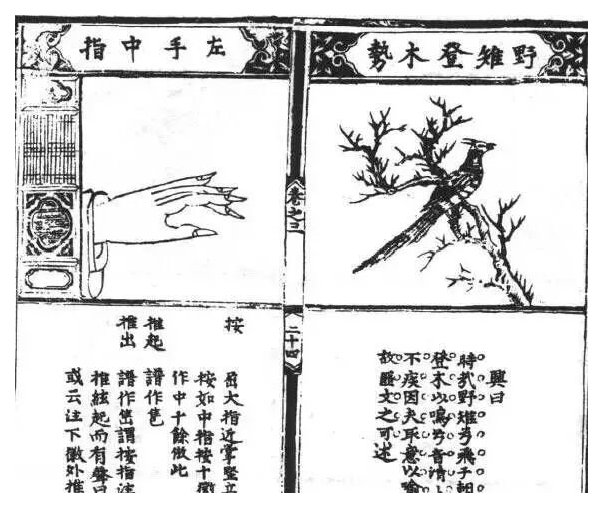 野雉登木勢
興曰
野雉兮飛于朝
登木以鳴兮音清
不疾因夫取意以喻
故匪文之可述
卷之
二十四
左手中指
按
大指近掌豎立
按如中指按十徽
作中十餘倣此
推起
譜作
推出
譜作 謂按指注
推絃起而有聲曰
或云注下徽外推